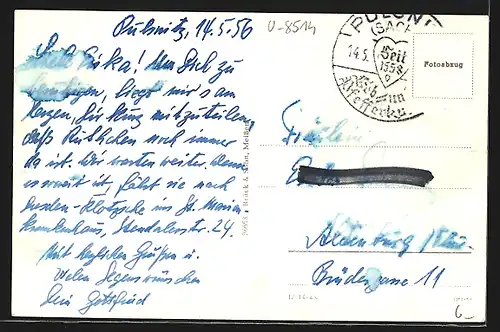 Pulsnitz, 14.5.56
U-8514
PULSNITZ
(SACHS)
14.5.
Seit
1558
Pfefferku
Fotoabzug
Liebe Erika! Um Dich zu
beruhigen, liegt mir's am
Herzen, Dir kurz mitzuteilen,
daß Ruthchen noch immer
da ist. Wir warten weiter. Wenn
es soweit ist, fährt sie nach
Dresden-Klotzsche ins St. Marien-
krankenhaus, Mendelerstr. 24.
Mit herzlichen Grüßen u.
vielen Segenswünschen
Dein Gottfried
Brück & Sohn, Meißen
Fräulein
Altenburg /Thür.
Brüdergasse 11
6.–